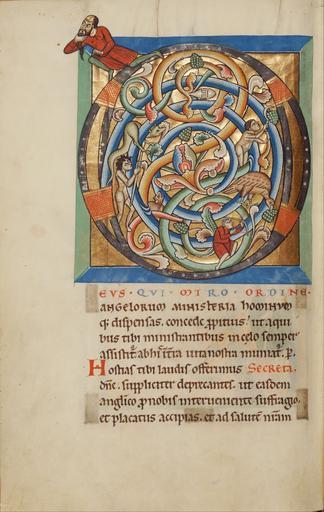 EVS · QVI · MIRO · ORDINE ·
ANGELORUM MINISTERIA HOMINUM
q; dispensas. concede ꝓpitius. ut a qui
bus tibi ministrantibus in celo semper
assistit᷑. ab hiſ i᷑ t᷑ra uita nostra muniat᷑. P.
Hostias tibi laudis offerimus Secreta.
dn̄e. suppliciter deprecantes. ut easdem
anglico ꝓ nobis interueniente suffragio.
et placatus accipias. et ad salutē nr̄am